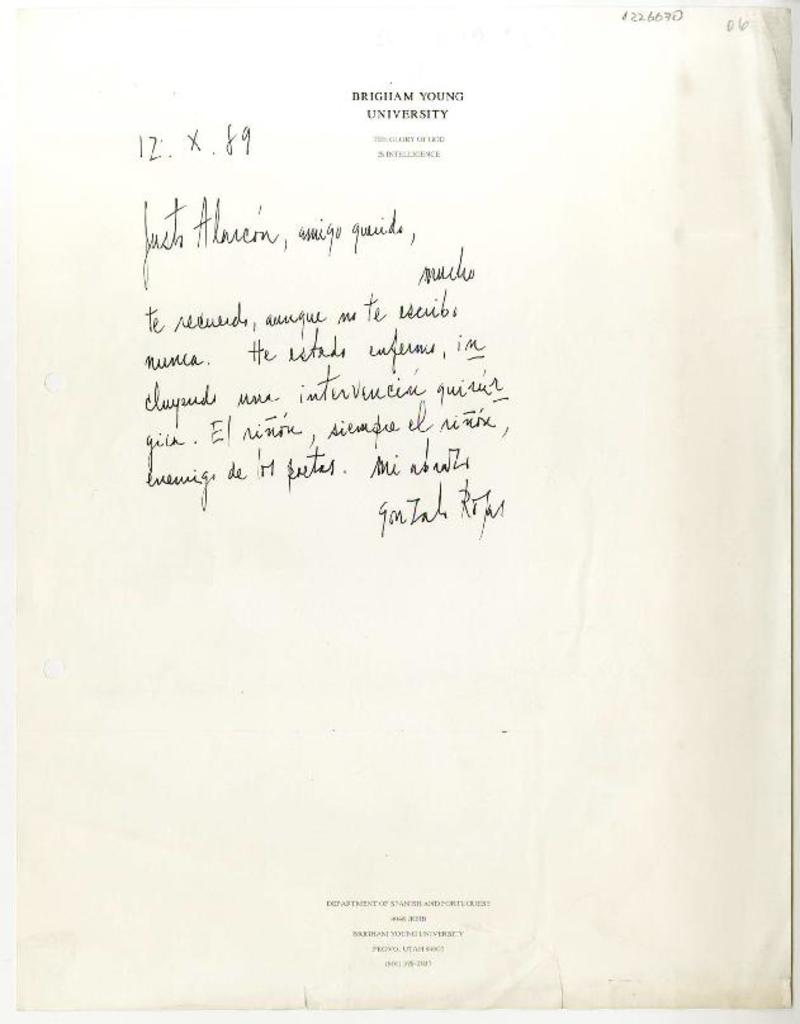 1226670
06
BRIGHAM YOUNG
UNIVERSITY
THE GLORY OF GOD
IS INTELLIGENCE
12. X. 89
Justo Alarcón, amigo querido,
mucho
te recuerdo, aunque no te escribo
nunca. He estado enfermo, in
cluyendo una intervención quirúr
gica. El riñón, siempre el riñón,
enemigo de los poetas. Mi abrazo
Gonzalo Rojas
DEPARTMENT OF SPANISH AND PORTUGUESE
JKHB
BRIGHAM YOUNG UNIVERSITY
PROVO, UTAH 84602